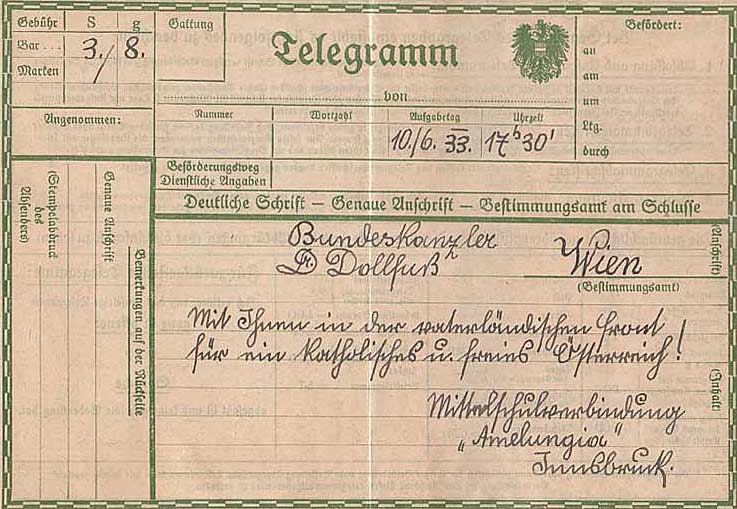 Gebühr S g
Bar ... 3./ 8.
Marken
Angenommen:
Gattung
Telegramm
von
Nummer Wortzahl Aufgabetag Uhrzeit
10./6. 33. 17h 30'
Beförderungsweg
Dienstliche Angaben
Befördert:
an
am
um
Ltg.
durch
Deutliche Schrift — Genaue Anschrift — Bestimmungsamt am Schlusse
Bundeskanzler
Dr. Dollfuß Wien
(Bestimmungsamt)
(Anschrift)
Mit Ihnen in der vaterländischen Front
für ein katholisches u. freies Österreich!
Mittelschulverbindung
„Amelungia"
Innsbruck.
(Inhalt)
(Stempelabdruck
des
Absenders)
Genaue Anschrift
Bemerkungen auf der Rückseite